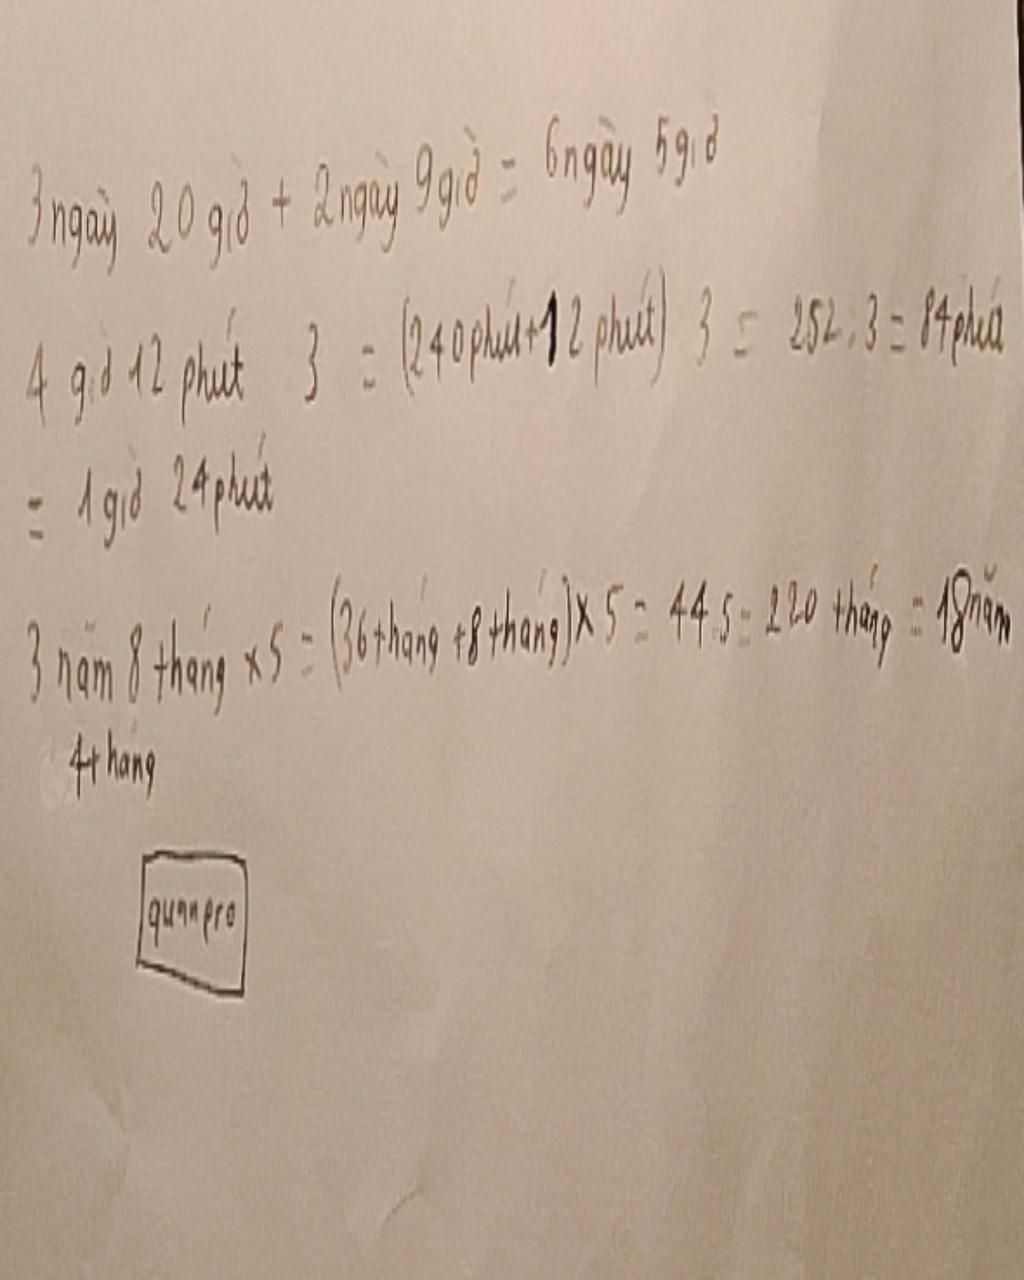 3 ngày 20 giờ + 2 ngày 9 giờ = 6 ngày 5 giờ
4 giờ 12 phút 3 = (240 phút + 12 phút) 3 = 252 : 3 = 84 phút
= 1 giờ 24 phút
3 năm 8 tháng x 5 = (36 tháng + 8 tháng) x 5 = 44.5 = 220 tháng = 18 năm
4 tháng
quanpro